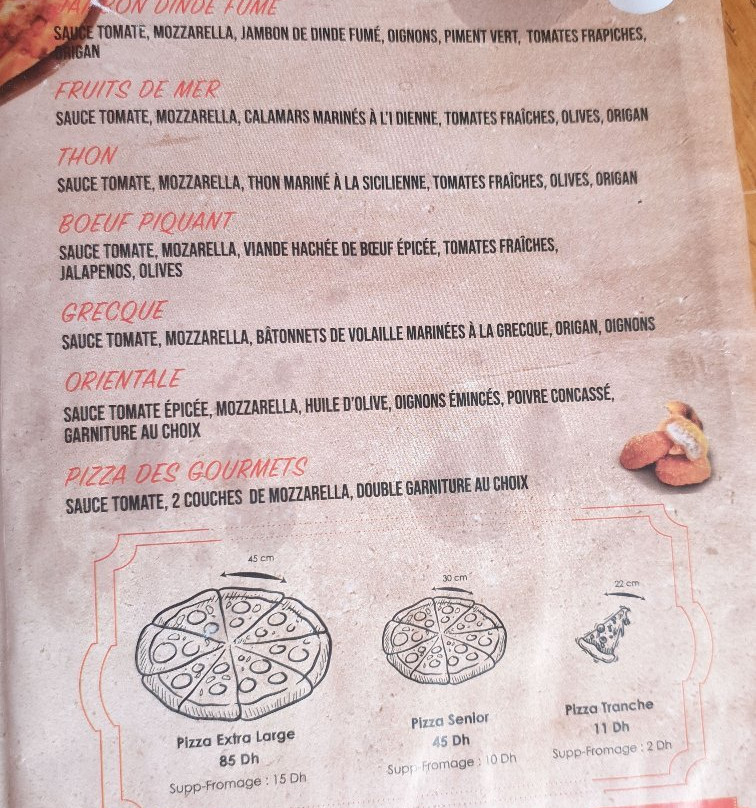 JAMBON DINDE FUMÉ
SAUCE TOMATE, MOZZARELLA, JAMBON DE DINDE FUMÉ, OIGNONS, PIMENT VERT, TOMATES FRAPICHES,
ORIGAN
FRUITS DE MER
SAUCE TOMATE, MOZZARELLA, CALAMARS MARINÉS À L'I DIENNE, TOMATES FRAÎCHES, OLIVES, ORIGAN
THON
SAUCE TOMATE, MOZZARELLA, THON MARINÉ À LA SICILIENNE, TOMATES FRAÎCHES, OLIVES, ORIGAN
BOEUF PIQUANT
SAUCE TOMATE, MOZARELLA, VIANDE HACHÉE DE BŒUF ÉPICÉE, TOMATES FRAÎCHES,
JALAPENOS, OLIVES
GRECQUE
SAUCE TOMATE, MOZZARELLA, BÂTONNETS DE VOLAILLE MARINÉES À LA GRECQUE, ORIGAN, OIGNONS
ORIENTALE
SAUCE TOMATE ÉPICÉE, MOZZARELLA, HUILE D'OLIVE, OIGNONS ÉMINCÉS, POIVRE CONCASSÉ,
GARNITURE AU CHOIX
PIZZA DES GOURMETS
SAUCE TOMATE, 2 COUCHES DE MOZZARELLA, DOUBLE GARNITURE AU CHOIX
45 cm
Pizza Extra Large
85 Dh
Supp-Fromage : 15 Dh
30 cm
Pizza Senior
45 Dh
Supp-Fromage : 10 Dh
22 cm
Pizza Tranche
11 Dh
Supp-Fromage : 2 Dh